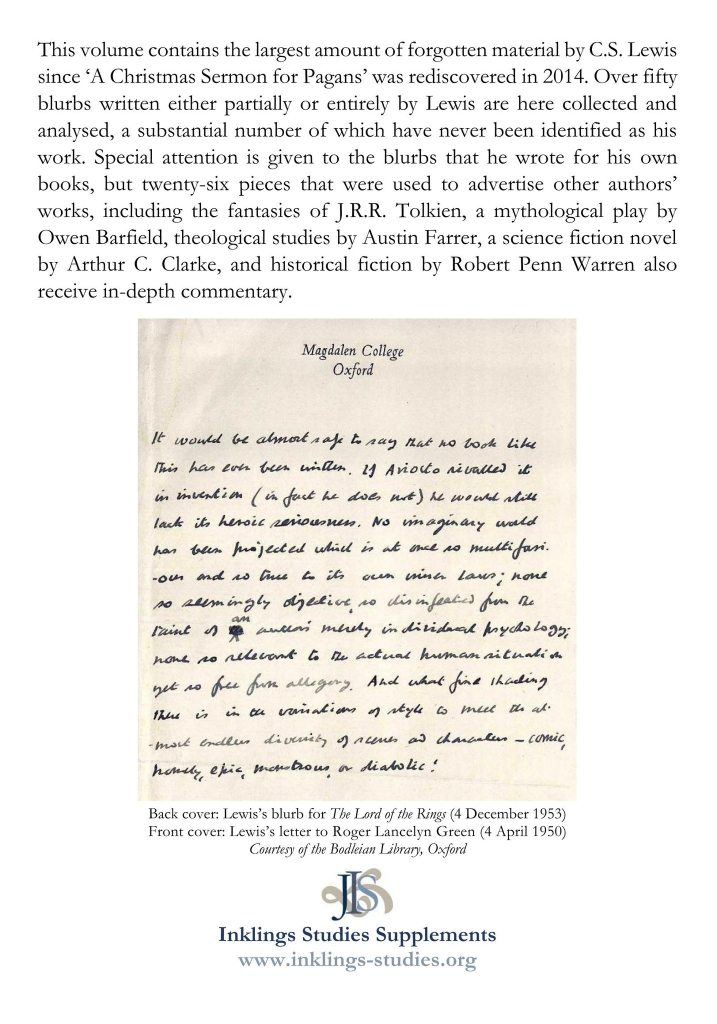 This volume contains the largest amount of forgotten material by C.S. Lewis
since ‘A Christmas Sermon for Pagans’ was rediscovered in 2014. Over fifty
blurbs written either partially or entirely by Lewis are here collected and
analysed, a substantial number of which have never been identified as his
work. Special attention is given to the blurbs that he wrote for his own
books, but twenty-six pieces that were used to advertise other authors’
works, including the fantasies of J.R.R. Tolkien, a mythological play by
Owen Barfield, theological studies by Austin Farrer, a science fiction novel
by Arthur C. Clarke, and historical fiction by Robert Penn Warren also
receive in-depth commentary.
Magdalen College
Oxford
It would be almost safe to say that no book like
this has ever been written. If Ariosto rivalled it
in invention (in fact he does not) he would still
lack its heroic seriousness. No imaginary world
has been projected which is at once so multifari-
-ous and so true to its own inner laws; none
so seemingly objective, so disinfected from the
taint of an author's merely individual psychology;
none so relevant to the actual human situation
yet so free from allegory. And what fine shading
there is in the variations of style to meet the al-
-most endless diversity of scenes and characters – comic,
homely, epic, monstrous, or diabolic!
Back cover: Lewis’s blurb for The Lord of the Rings (4 December 1953)
Front cover: Lewis’s letter to Roger Lancelyn Green (4 April 1950)
Courtesy of the Bodleian Library, Oxford
JIS
Inklings Studies Supplements
www.inklings-studies.org